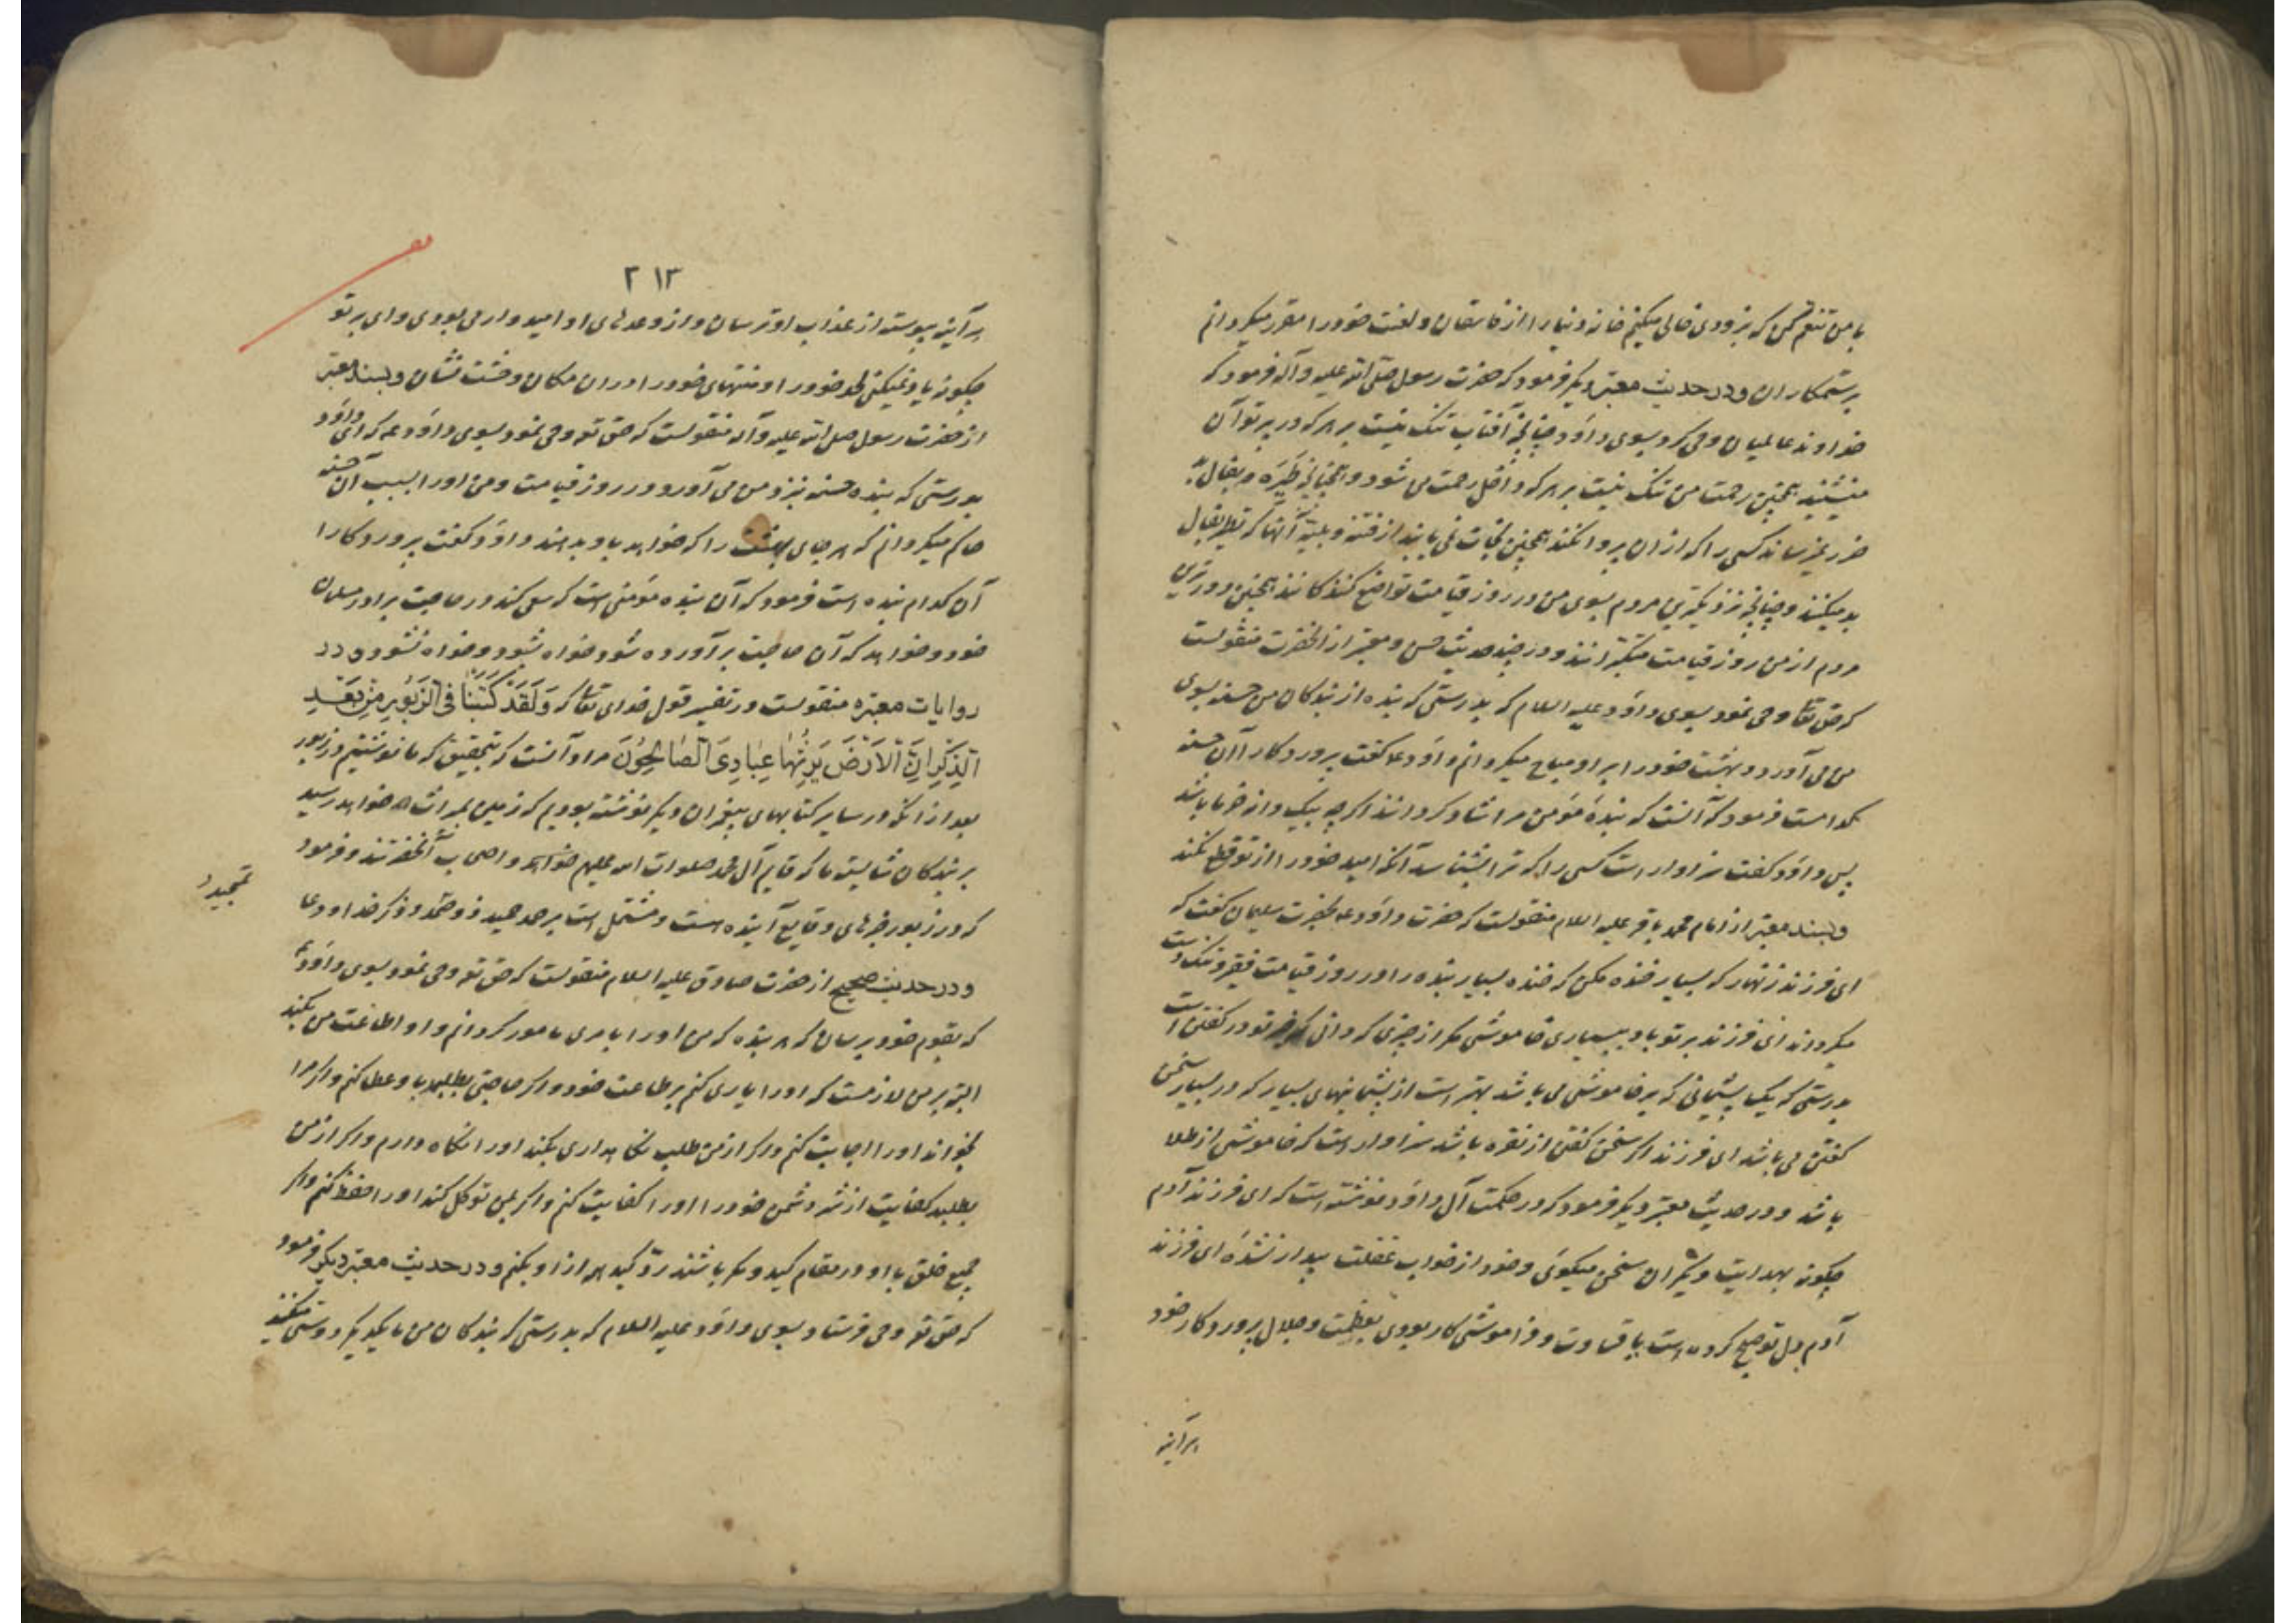 با من تنعم کن که بزودی خالی میکنم خانه دنیا را از فاسقان و لعنت خود را مقرر میکردانم
بر ستمکاران و در حدیث معتبر دیکر فرمود که حضرت رسول صلی الله علیه وآله فرمود که
خداوند عالمیان وحی کرد بسوی داود چنانچه آفتاب تنک نیست بر هر که در پرتو آن
منشیند همچنین رحمت من تنک نیست بر هر که داخل رحمت می شود و همچنانچه طیره و بفال بد
ضرر نمیرساند کسی را که از ان پروا نکند همچنین نجات نمی یابند از فتنه و بلیه آنها که تطیر بفال
بد میکنند و چنانچه نزدیکترین مردم بسوی من در روز قیامت تواضع کنندکانند همچنین دورترین
مردم از من روز قیامت متکبرانند و در چند حدیث حسن و معتبر از انحضرت منقولست
که حق تعا وحی نمود بسوی داود علیه السلام که بدرستی که بنده از بندکان من حسنه بسوی
من می آورد و بهشت خود را بر او مباح میکردانم داود ع کفت پروردکارا آن حسنه
کدامست فرمود که آنست که بندهٔ مؤمن مرا شاد کرداند اکرچه بیک دانه خرما باشد
پس داود کفت سزاوار است کسی را که ترا بشناسد آنکه امید خود را از تو قطع نکند
و بسند معتبر از امام محمد باقر علیه السلام منقولست که حضرت داود ع بحضرت سلیمان کفت که
ای فرزند زنهار که بسیار خنده مکن که خنده بسیار بنده را در روز قیامت فقیر و تنک دست
میکرداند ای فرزند بر تو باد ببسیاری خاموشی مکر از چیزی که دانی که خیر تو در کفتن است
بدرستی که یک پشیمانی که بر خاموشی می باشد بهتر است از پشیمانیهای بسیار که در بسیار سخن
کفتن می باشد ای فرزند اکر سخن کفتن از نقره باشد سزاوار است که خاموشی از طلا
باشد و در حدیث معتبر دیکر فرمود که در حکمت آل داود نوشته است که ای فرزند آدم
چکونه بهدایت دیکران سخن میکوئی و خود از خواب غفلت بیدار نشدهٔ ای فرزند
آدم دل تو صبح کرده است با قساوت و فراموشی کار بودی بعظمت و جلال پروردکار خود
هر آینه
۲۱۳
هر آینه پیوسته از عذاب او ترسان و از وعدهای او امیدوار می بودی وای بر تو
چکونه یاد نمیکنی لحد خود را و تنهای خود را در ان مکان وحشت نشان و بسند معتبر
از حضرت رسول صلی الله علیه وآله منقولست که حق تع وحی نمود بسوی داود ع که ای داود
بدرستی که بنده حسنه بنزد من می آورد در روز قیامت و من او را بسبب آن حسنه
حاکم میکردانم که هر جای بهشت را که خواهد باو بدهند داود کفت پروردکارا
آن کدام بنده است فرمود که آن بنده مؤمنی است که سعی کند در حاجت برادر مسلمان
خود و خواهد که آن حاجت برآورده شود خواه بشود و خواه نشود و در
روایات معتبره منقولست در تفسیر قول خدای تعا که وَلَقَدْ کَتَبْنَا فِی الزَّبُورِ مِنْ بَعْدِ
الذِّکْرِ اَنَّ الْاَرْضَ یَرِثُهَا عِبَادِیَ الصَّالِحُونَ مراد آنست که بتحقیق که ما نوشتیم در زبور
بعد از انکه در سایر کتابهای پیغمبران دیکر نوشته بودیم که زمین بمیراث خواهد رسید
بر بندکان شایسته ما که قایم آل محمد صلوات الله علیهم و اصحاب آنحضرتند و فرمود
که در زبور خبرهای وقایع آینده هست و مشتمل است بر حمد و ذکر خدا و دعا
تمجید
و در حدیث صحیح از حضرت صادق علیه السلام منقولست که حق تع وحی نمود بسوی داود ع
که بقوم خود برسان که هر بنده که من او را بامری مامور کردانم و او اطاعت من بکند
البته بر من لازمست که او را یاری کنم بر طاعت خود و اکر حاجتی بطلبد باو عطا کنم و اکر مرا
بخواند او را اجابت کنم و اکر از من طلب نکاهداری بکند او را نکاه دارم و اکر از من
بطلبد کفایت از شر دشمن خود را او را کفایت کنم و اکر بمن توکل کند او را حفظ کنم و اکر
جمیع خلق با او در مقام کید و مکر باشند ردّ کید همه از او بکنم و در حدیث معتبر دیکر فرمود
که حق تع وحی فرستاد بسوی داود علیه السلام که بدرستی که بندکان من با یکدیکر دوستی میکنند